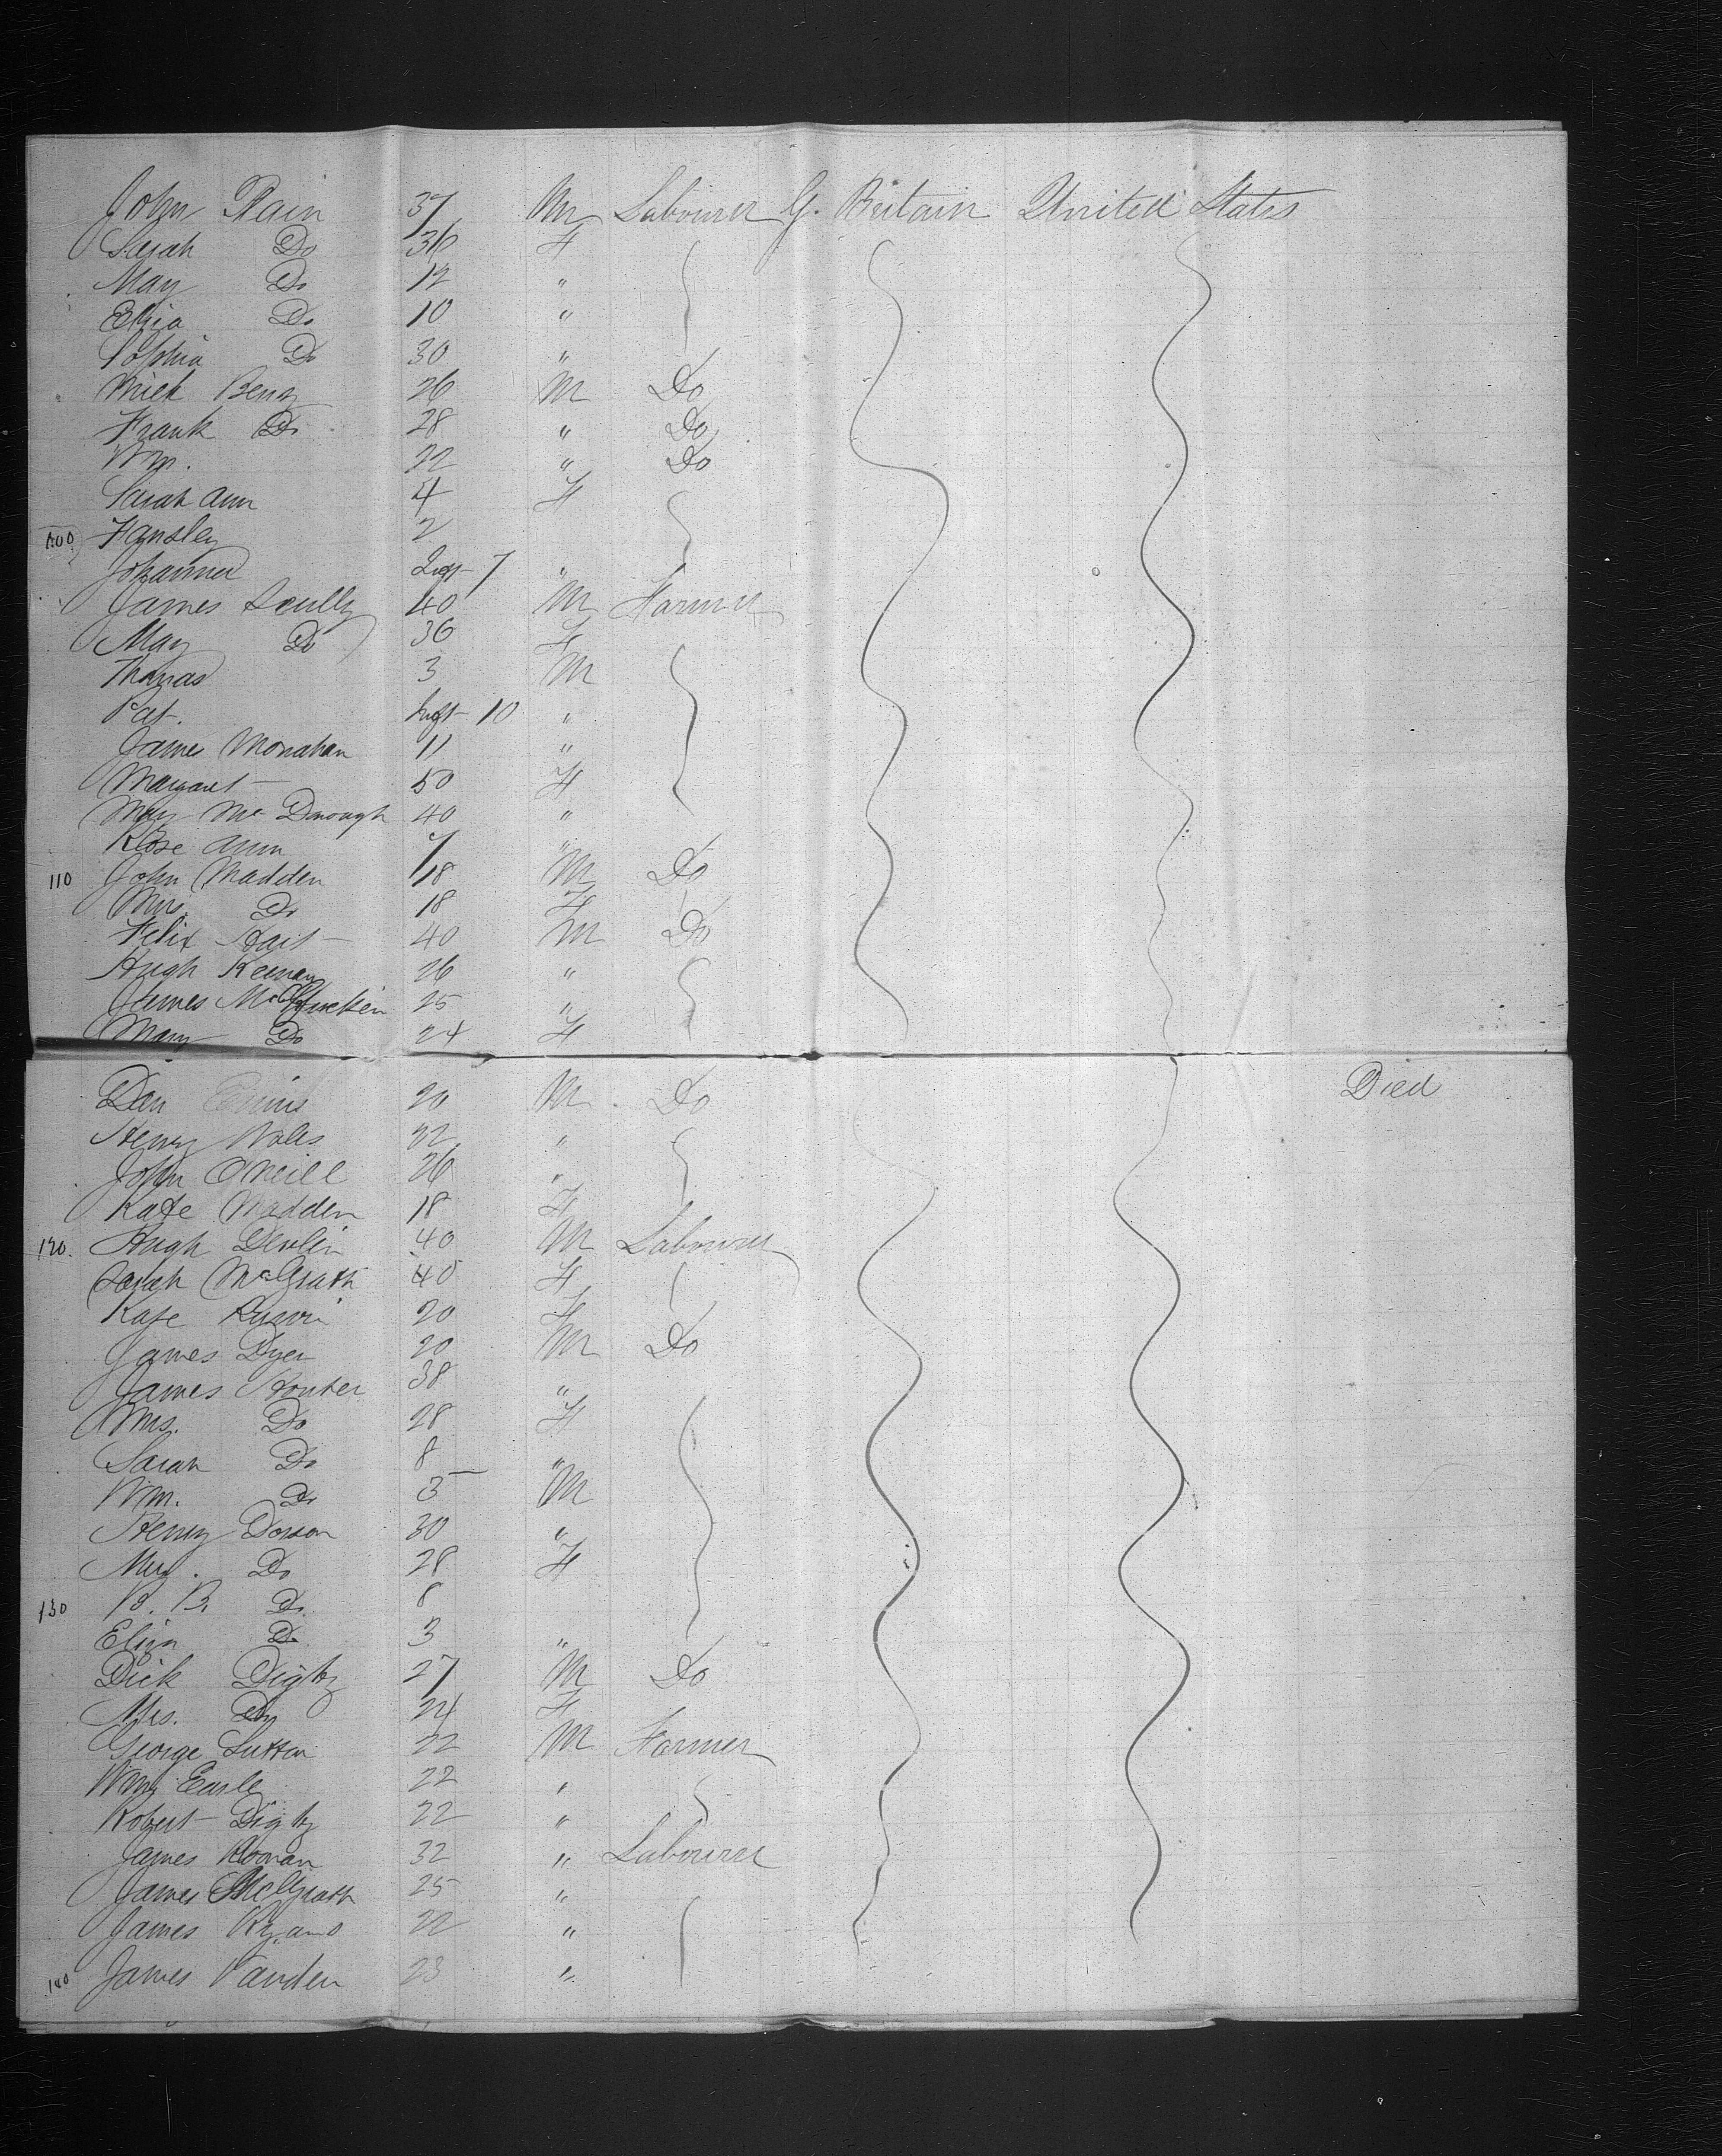 John Rain 37 M Labourer G. Britain United States
Sarah Do 36 F
May Do 12 "
Eliza Do 10 "
Sophia Do 30 "
Mick Benz 26 M Do
Frank Do 28 " Do
Wm. 22 " Do
Sarah Ann 4 F
100 2
Johanna Inft 7 "
James Scully 40 M Farmer
May Do 36 F
Thomas 3 M
Pat. Inft 10 "
James Monahan 11 "
Margaret 50 F
May McDonough 40 "
Rose Ann 7 "
110 John Madden 18 M Do
Mrs. Do 18 F
Felix Hart 40 M Do
Hugh Keenan 26 "
James McGuckin 25 "
Mary Do 24 F
Den 20 M Do Died
Henry Wales 22 "
John O'Neill 26 "
Kate Madden 18 F
120. Hugh Devlin 40 M Labourer
Sarah McGrath 40 F
Kate 20 F
James Dyer 20 M Do
James Hunter 38 "
Mrs. Do 28 F
Sarah Do 8 "
Wm. Do 3 M
Henry Dorson 30 "
Do 28 F
130 B. B. Do 8
Eliza Do 3 "
Dick Digby 27 M Do
Mrs. Do 24 F
George Sutton 22 M Farmer
Wm Earle 22 "
Robert Digby 22 "
James Roonan 32 " Labourer
James McGrath 25 "
James Ryans 22 "
140 James 23 "